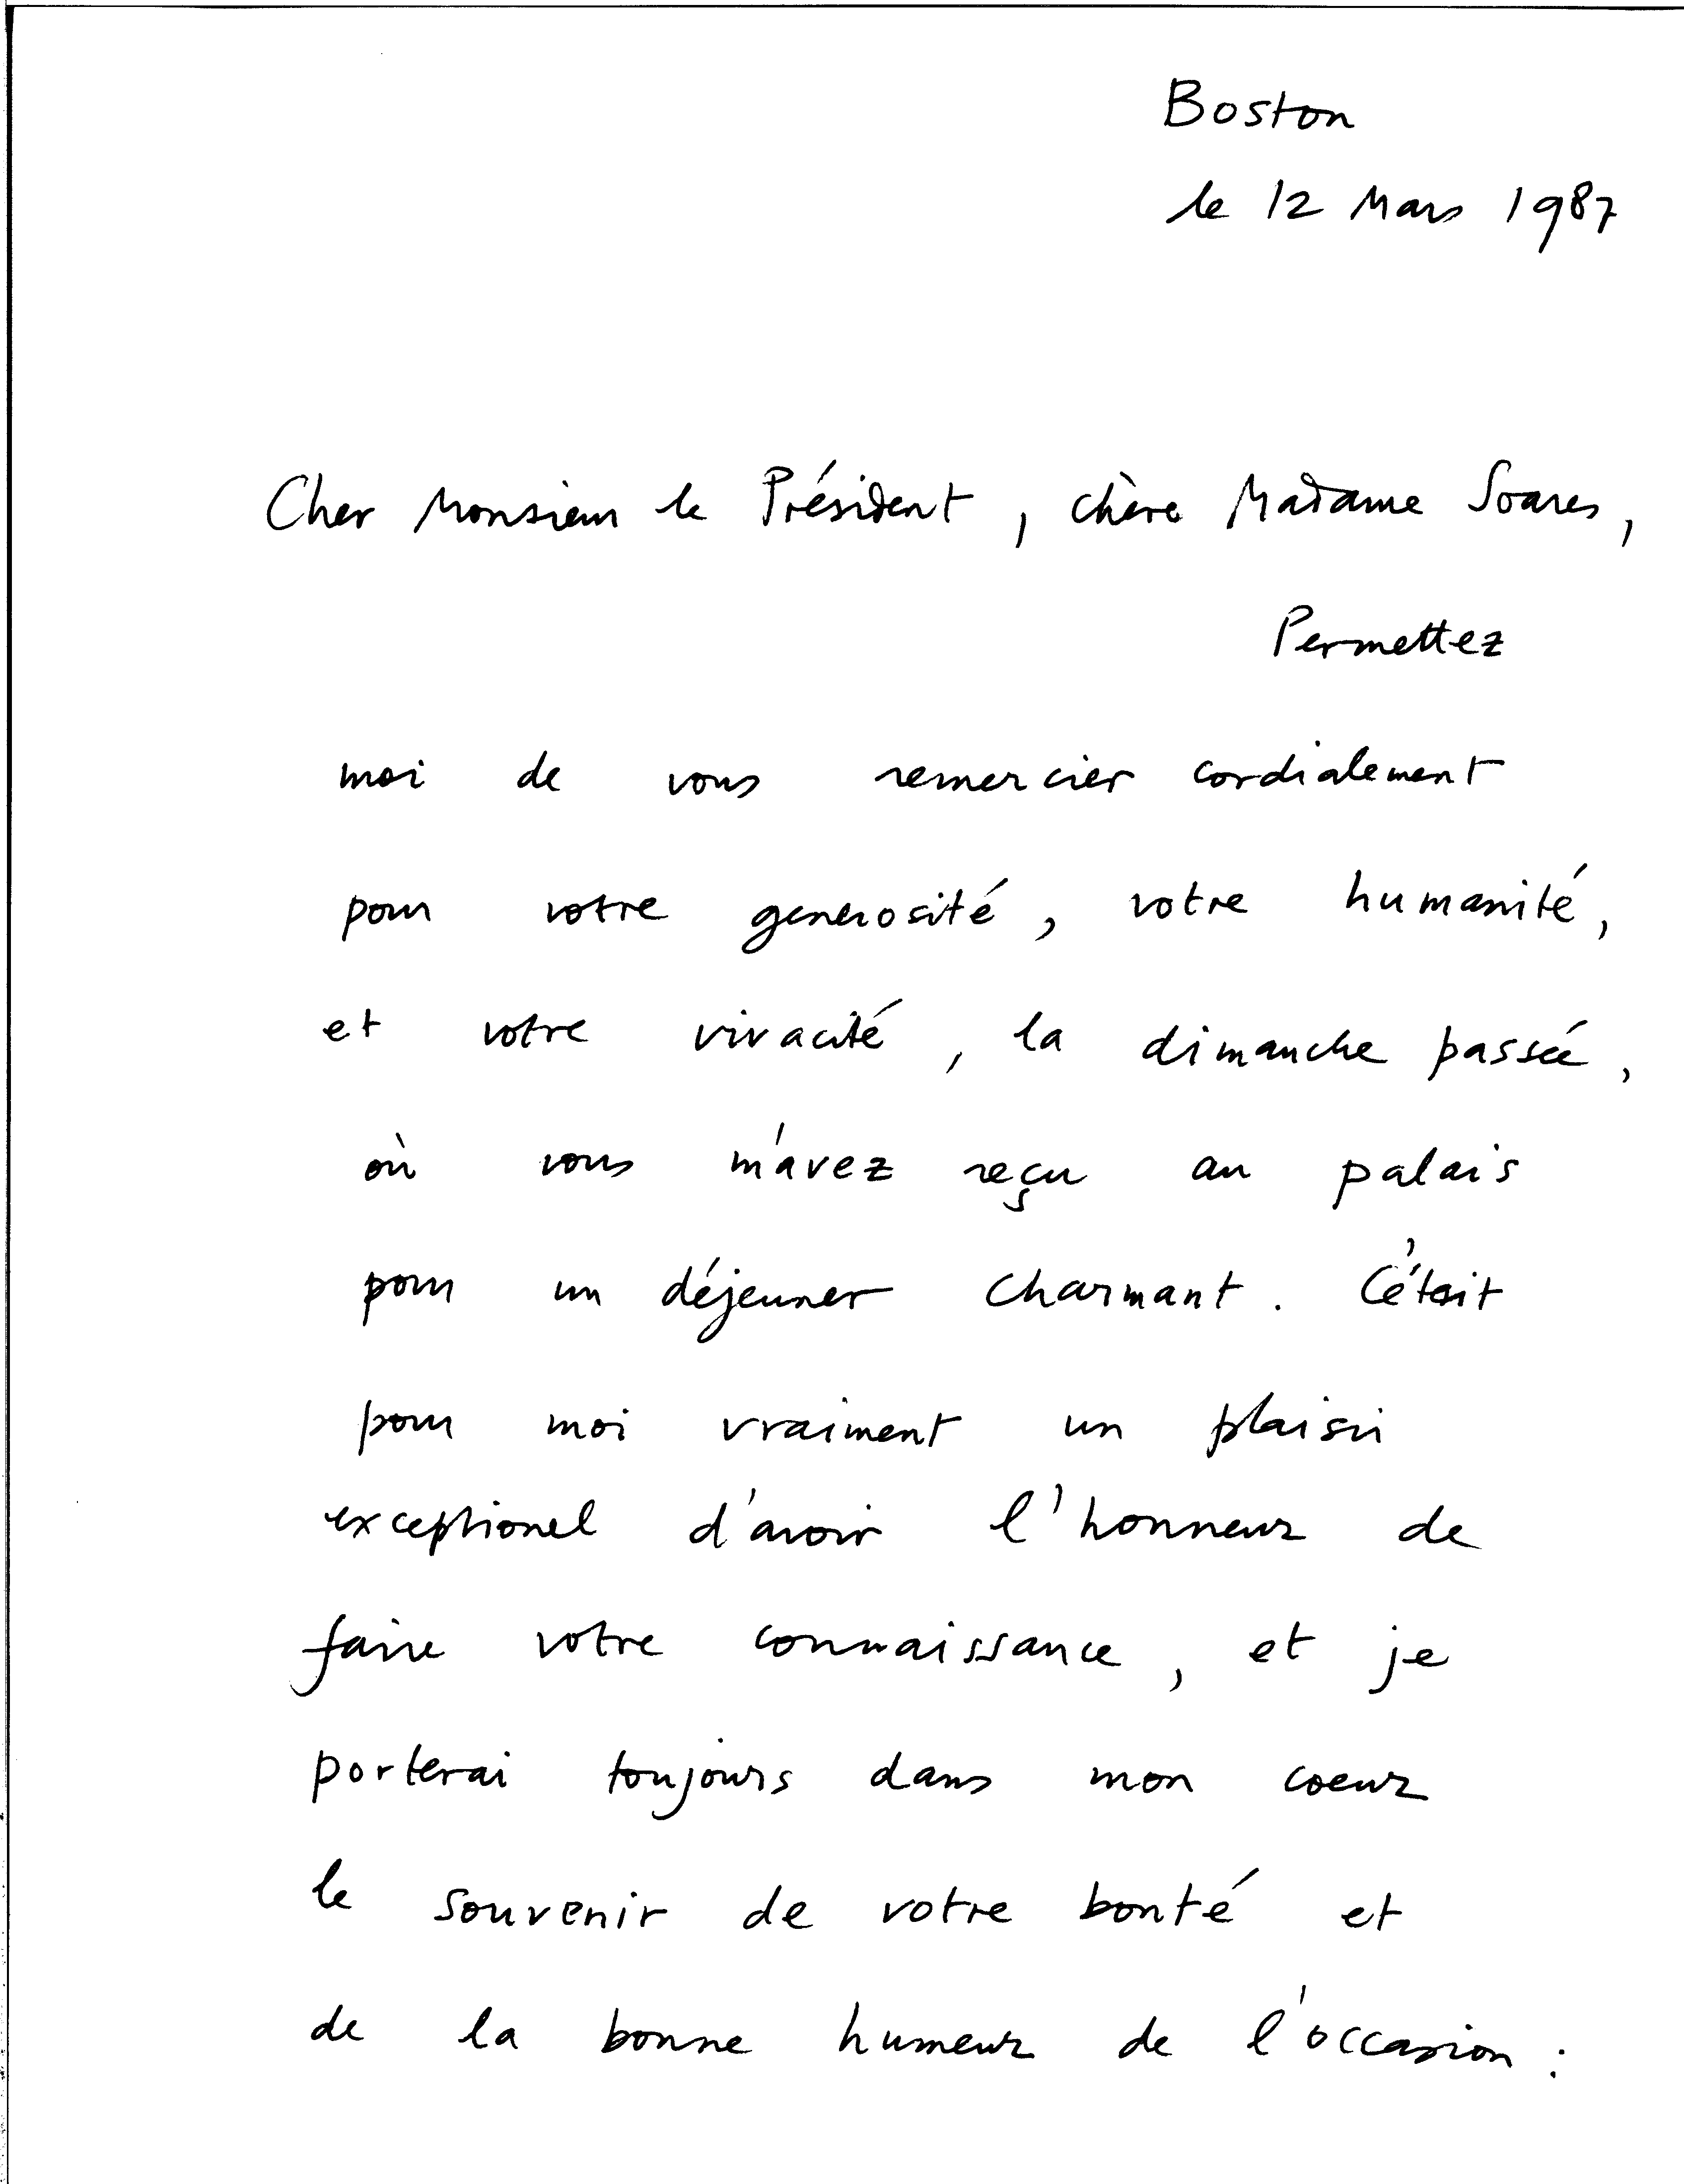 Boston
le 12 Mars 1987
Cher Monsieur le Président, chère Madame Soares,
Permettez
moi de vous remercier cordialement
pour votre generosité, votre humanité,
et votre vivacité, la dimanche passée,
où vous m'avez reçu au palais
pour un déjeuner charmant. C'était
pour moi vraiment un plaisir
exceptionel d'avoir l'honneur de
faire votre connaissance, et je
porterai toujours dans mon coeur
le souvenir de votre bonté et
de la bonne humeur de l'occasion: